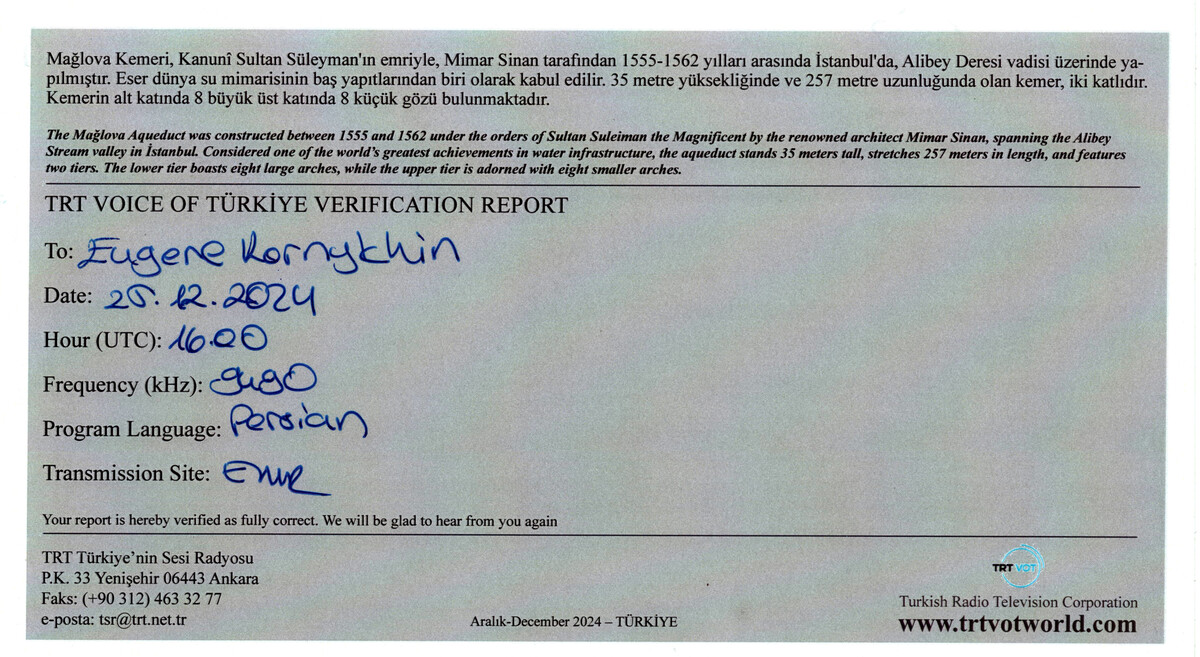 Mağlova Kemeri, Kanunî Sultan Süleyman'ın emriyle, Mimar Sinan tarafından 1555-1562 yılları arasında İstanbul'da, Alibey Deresi vadisi üzerinde ya-
pılmıştır. Eser dünya su mimarisinin baş yapıtlarından biri olarak kabul edilir. 35 metre yüksekliğinde ve 257 metre uzunluğunda olan kemer, iki katlıdır.
Kemerin alt katında 8 büyük üst katında 8 küçük gözü bulunmaktadır.
The Mağlova Aqueduct was constructed between 1555 and 1562 under the orders of Sultan Suleiman the Magnificent by the renowned architect Mimar Sinan, spanning the Alibey
Stream valley in İstanbul. Considered one of the world's greatest achievements in water infrastructure, the aqueduct stands 35 meters tall, stretches 257 meters in length, and features
two tiers. The lower tier boasts eight large arches, while the upper tier is adorned with eight smaller arches.
TRT VOICE OF TÜRKİYE VERIFICATION REPORT
To: Eugene Kornykhin
Date: 25.12.2024
Hour (UTC): 16.00
Frequency (kHz): 9490
Program Language: Persian
Transmission Site: EMR
Your report is hereby verified as fully correct. We will be glad to hear from you again
TRT Türkiye'nin Sesi Radyosu
P.K. 33 Yenişehir 06443 Ankara
Faks: (+90 312) 463 32 77
e-posta: tsr@trt.net.tr
Aralık-December 2024 – TÜRKİYE
TRT VOT
Turkish Radio Television Corporation
www.trtvotworld.com